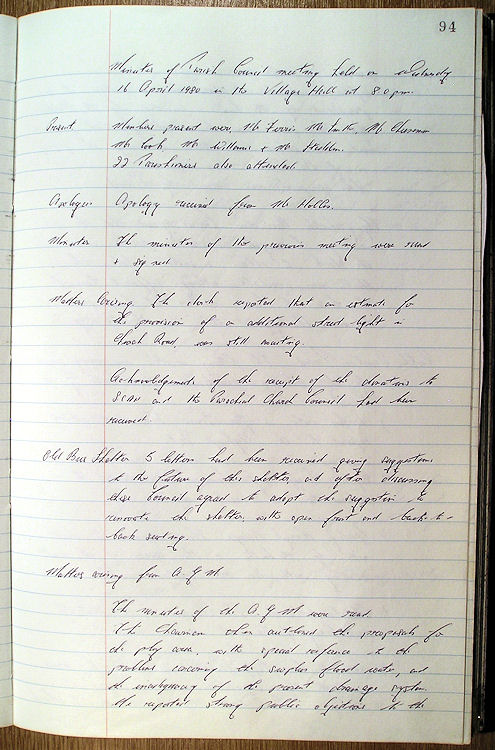 94
Minutes of Parish Council meeting held on Wednesday
16 April 1980 in the Village Hall at 8.0 pm.
Present. Members present were, Mr Ferris Mr Mr Chessman
Mr Cook Mr Williams + Mr
22 Parishioners also attended.
Apologies Apology received from Mr
Minutes The minutes of the previous meeting were read
+ signed.
Matters Arising. The clerk reported that an estimate for
the provision of an additional street light in
Church Road, was still awaiting.
Acknowledgements of the receipt of the donations to
and the Parochial Church Council had been
received.
Old Bus Shelter 5 letters had been received giving suggestions
to the future of this shelter, and after discussing
these Council agreed to adopt the suggestion to
renovate the shelter, with open front and back-to-
back seating.
Matters arising from A G M
The minutes of the A G M were read.
The Chairman then outlined the proposals for
the play area, with special reference to the
problems concerning the surplus flood water, and
the inadequacy of the present drainage system.
He reported strong public objections to the